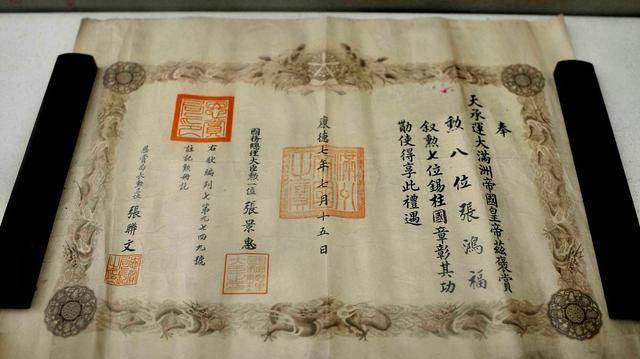 奉
天承運大滿洲帝國皇帝茲褒賞
勲八位張鴻福
叙勲七位錫柱國章彰其功
勛使得享此禮遇
康德七年七月十五日
國務總理大臣勲一位張景惠
右狀編列七第九七四九號
註記勲冊訖
恩賞局長勲三位張聯文